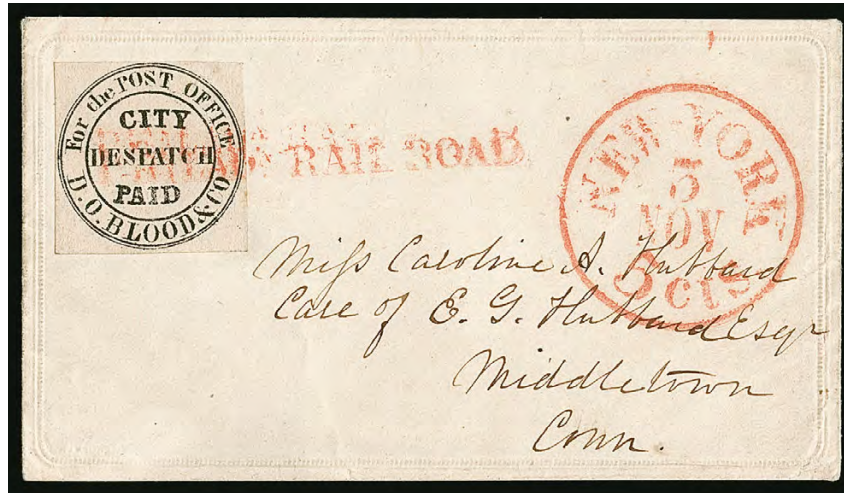 For the POST OFFICE
CITY
DESPATCH
PAID
D.O. BLOOD & CO
RAIL ROAD
NEW-YORK
5
NOV
5 cts
Miss Caroline A. Hubbard
Care of E. G. Hubbard Esqr
Middletown
Conn.